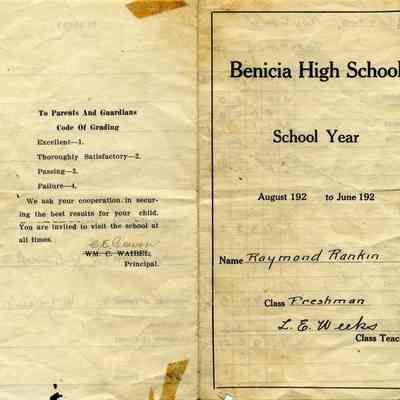 To Parents And Guardians
Code Of Grading
Excellent—1.
Thoroughly Satisfactory—2.
Passing—3.
Failure—4.
We ask your cooperation in secur-
ing the best results for your child.
You are invited to visit the school at
all times.
WM. C. WAIBEL,
Principal.
Benicia High School
School Year
August 192 to June 192
Name Raymond Rankin
Class Freshman
L. E. Weeks
Class Teac